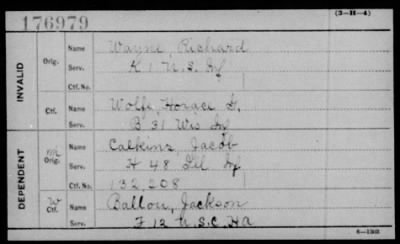 (3-H-4)
176979
INVALID
Orig.
Name Wayne, Richard
Serv. K 1 U.S. Inf
Ctf. No.
Ctf.
Name Wolfe, Horace G.
Serv. B 31 Wis Inf
DEPENDENT
M
Orig.
Name Calkins, Jacob
Serv. H 48 Ill Inf
Ctf. No. 132,208
W
Ctf.
Name Ballou, Jackson
Serv. F 12 U.S.C. HA